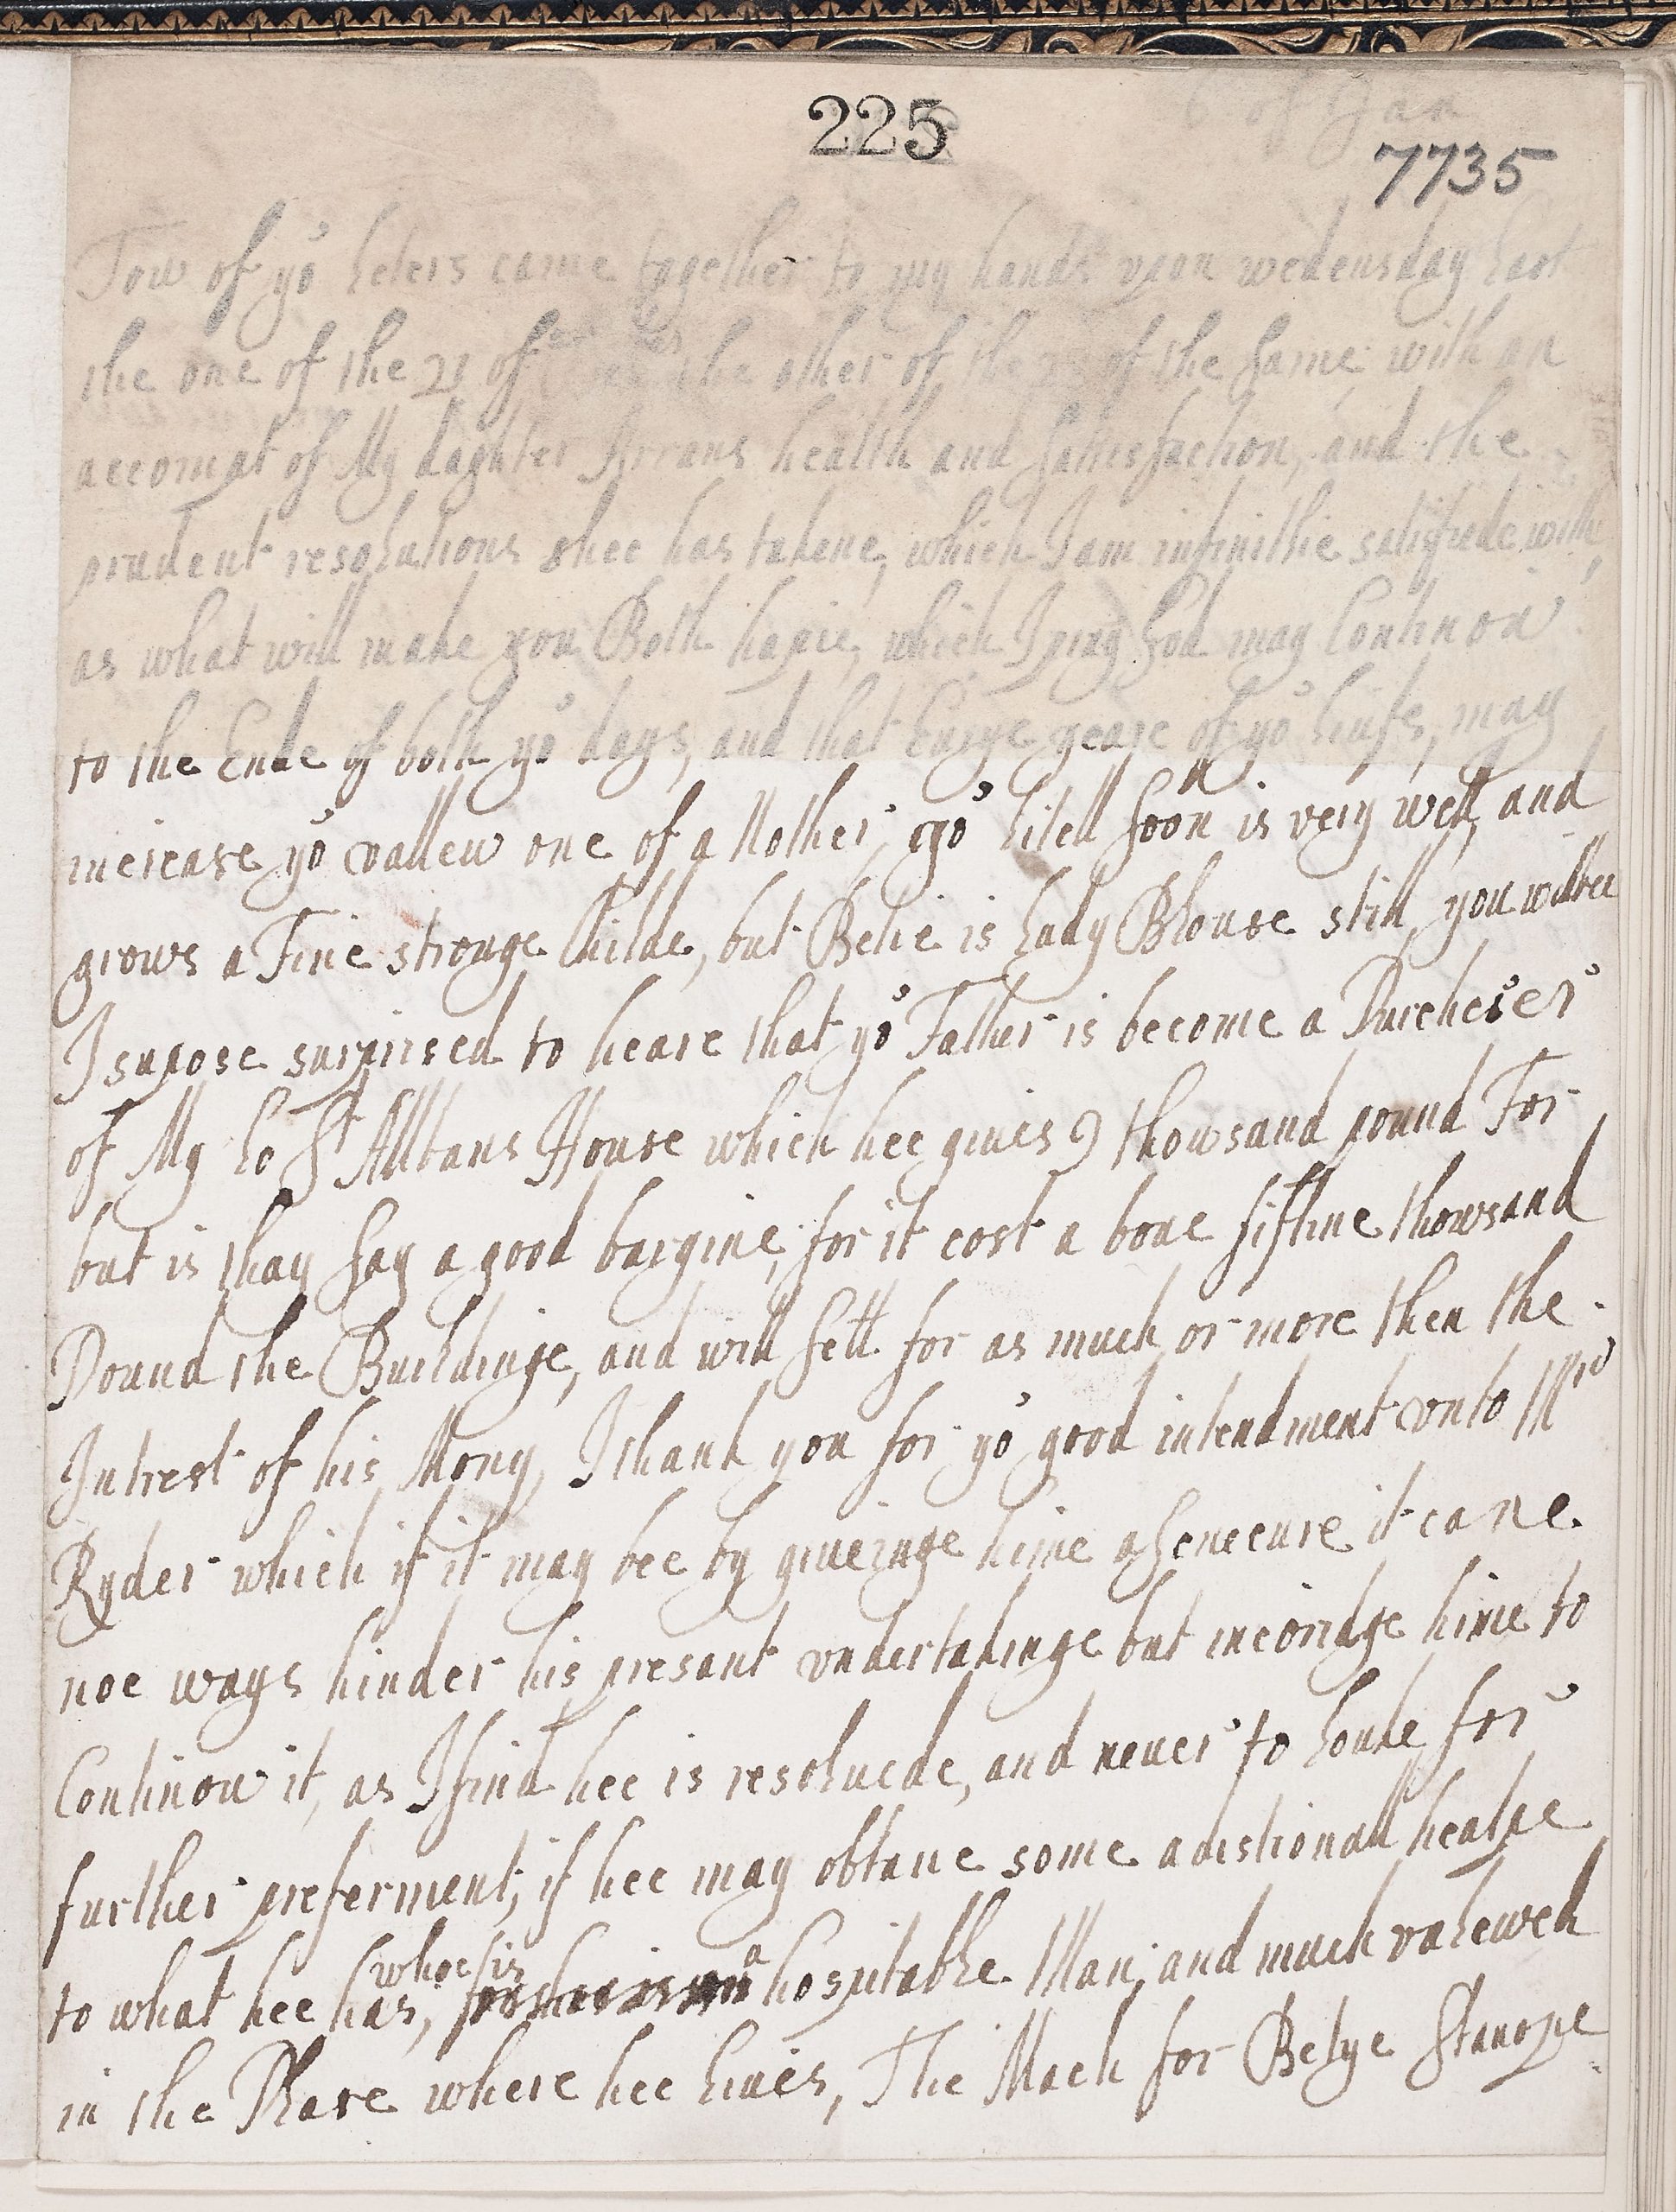 225
6 of Jan
7735
Tow of yor leters came together to my hands vpon wedensday last
the one of the 21 of the other of the of the same with an
accompt of My daghter Arrans health and sattisfaction, and the
prudent resolutions shee has takene, which I am infinitlie satisfiede with,
as what will make you Both hapie, which I pray God may Continow
to the Ende of both yor days, and that Eurye yeare of yor liufe, may
increase yor vallew one of a Nother, yor litell soon is very well, and
grows a Fine stronge Childe, but Betie is Lady Blouse still, you willbee
I supose surprised to heare that yor Father is become a Purcheser
of My Lo St Allbans House which hee giues 9 thowsand pound For
but is thay say a good bargine, for it cost a boue fiftine thowsand
Pound the Buildinge, and will sett for as much or more then the
Intrest of his Mony, I thank you for yor good intendment vnto Mr
Ryder which if it may bee by giueinge hime a senecure it cane
noe ways hinder his presant vndertakinge but incoridge hime to
Continow it, as I find hee is resoluede, and neuer to Louke for
further preferment, if hee may obtane some adistionall healpe
to what hee has, whoe is a hospitable Man, and much valewed
in the Plase where hee liues, The Mach for Betye Stanope